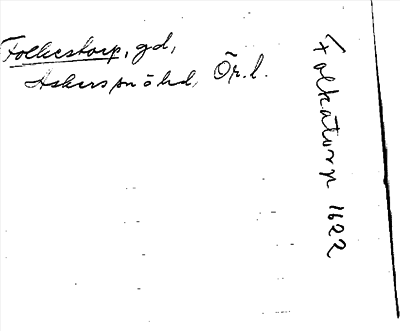 Folkestorp, gd,
Askers sn ö hd, Ör. l.
Folkatorp 1622